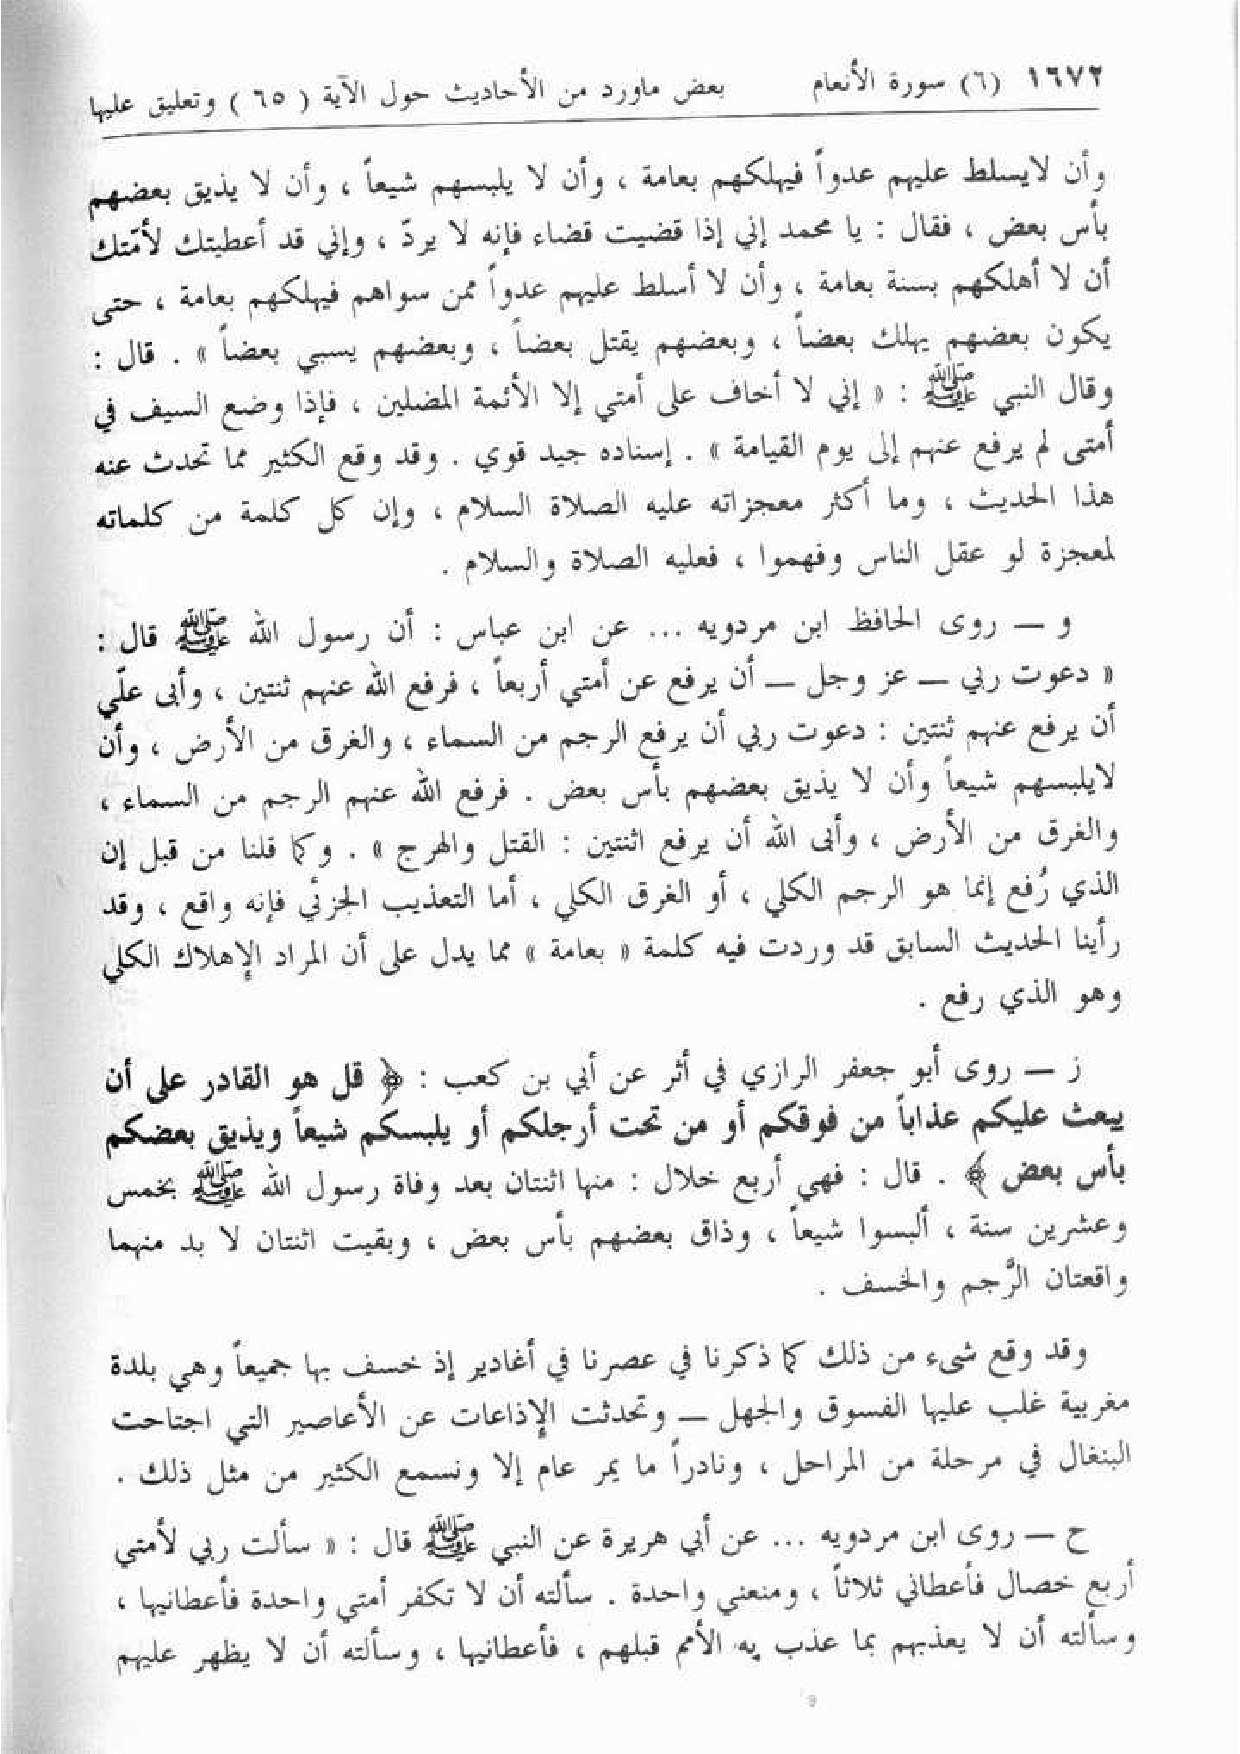 ١٦٧٢ (٦) سورة الأنعام بعض ماورد من الأحاديث حول الآية ( ٦٥ ) وتعليق عليها
وأن لايسلط عليهم عدواً فيهلكهم بعامة ، وأن لا يلبسهم شيعاً ، وأن لا يذيق بعضهم
بأس بعض ، فقال : يا محمد إني إذا قضيت قضاء فإنه لا يردّ ، وإني قد أعطيتك لأمّتك
أن لا أهلكهم بسنة بعامة ، وأن لا أسلط عليهم عدواً ممن سواهم فيهلكهم بعامة ، حتى
يكون بعضهم يهلك بعضاً ، وبعضهم يقتل بعضاً ، وبعضهم يسبي بعضاً » . قال :
وقال النبي ﷺ : « إني لا أخاف على أمتي إلا الأئمة المضلين ، فإذا وضع السيف في
أمتى لم يرفع عنهم إلى يوم القيامة » . إسناده جيد قوي . وقد وقع الكثير مما تحدث عنه
هذا الحديث ، وما أكثر معجزاته عليه الصلاة السلام ، وإن كل كلمة من كلماته
لمعجزة لو عقل الناس وفهموا ، فعليه الصلاة والسلام .
و – روى الحافظ ابن مردويه ... عن ابن عباس : أن رسول الله ﷺ قال :
« دعوت ربي – عز وجل – أن يرفع عن أمتي أربعاً ، فرفع الله عنهم ثنتين ، وأبى علّي
أن يرفع عنهم ثنتين : دعوت ربي أن يرفع الرجم من السماء ، والغرق من الأرض ، وأن
لايلبسهم شيعاً وأن لا يذيق بعضهم بأس بعض . فرفع الله عنهم الرجم من السماء ،
والغرق من الأرض ، وأبى الله أن يرفع اثنتين : القتل والهرج » . وكما قلنا من قبل إن
الذي رُفع إنما هو الرجم الكلي ، أو الغرق الكلي ، أما التعذيب الجزئي فإنه واقع ، وقد
رأينا الحديث السابق قد وردت فيه كلمة « بعامة » مما يدل على أن المراد الإهلاك الكلي
وهو الذي رفع .
ز – روى أبو جعفر الرازي في أثر عن أبي بن كعب : ﴿ قل هو القادر على أن
يبعث عليكم عذاباً من فوقكم أو من تحت أرجلكم أو يلبسكم شيعاً ويذيق بعضكم
بأس بعض ﴾ . قال : فهي أربع خلال : منها اثنتان بعد وفاة رسول الله ﷺ بخمس
وعشرين سنة ، ألبسوا شيعاً ، وذاق بعضهم بأس بعض ، وبقيت اثنتان لا بد منهما
واقعتان الرَّجم والخسف .
وقد وقع شىء من ذلك كما ذكرنا في عصرنا في أغادير إذ خسف بها جميعاً وهي بلدة
مغربية غلب عليها الفسوق والجهل – وتحدثت الإذاعات عن الأعاصير التي اجتاحت
البنغال في مرحلة من المراحل ، ونادراً ما يمر عام إلا ونسمع الكثير من مثل ذلك .
ح – روى ابن مردويه ... عن أبي هريرة عن النبي ﷺ قال : « سألت ربي لأمتي
أربع خصال فأعطاني ثلاثاً ، ومنعني واحدة . سألته أن لا تكفر أمتي واحدة فأعطانيها ،
وسألته أن لا يعذبهم بما عذب به الأمم قبلهم ، فأعطانيها ، وسألته أن لا يظهر عليهم